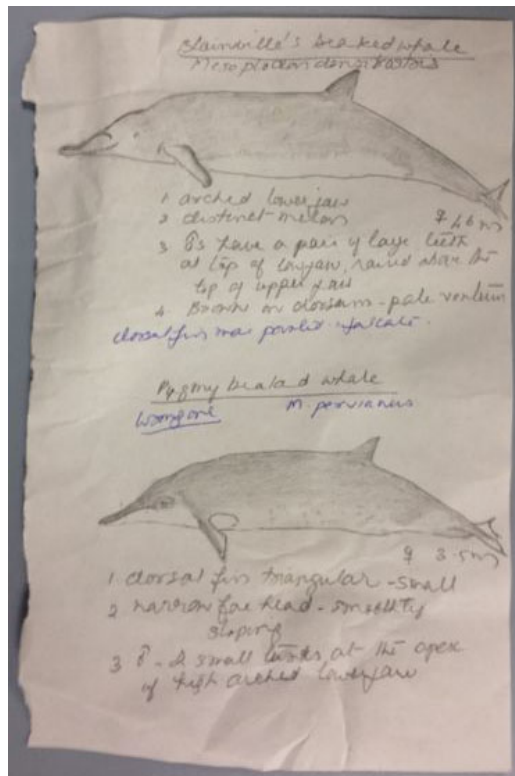 Blainville's beaked whale
Mesoplodon densirostris
1 arched lower jaw
2 distinct melon
♀ 4.6 m
3 ♂s have a pair of large teeth
at top of lowjaw, raised above the
top of upper jaw
4. Brown on dorsum - pale ventrum
dorsal fin more pointed - falcate.
Pygmy beaked whale
M. peruvianus
♀ 3.5m
1 dorsal fin triangular - small
2 narrow fore head - smoothly
sloping
3 ♂ - 2 small tusks at the apex
of high arched lowerjaw